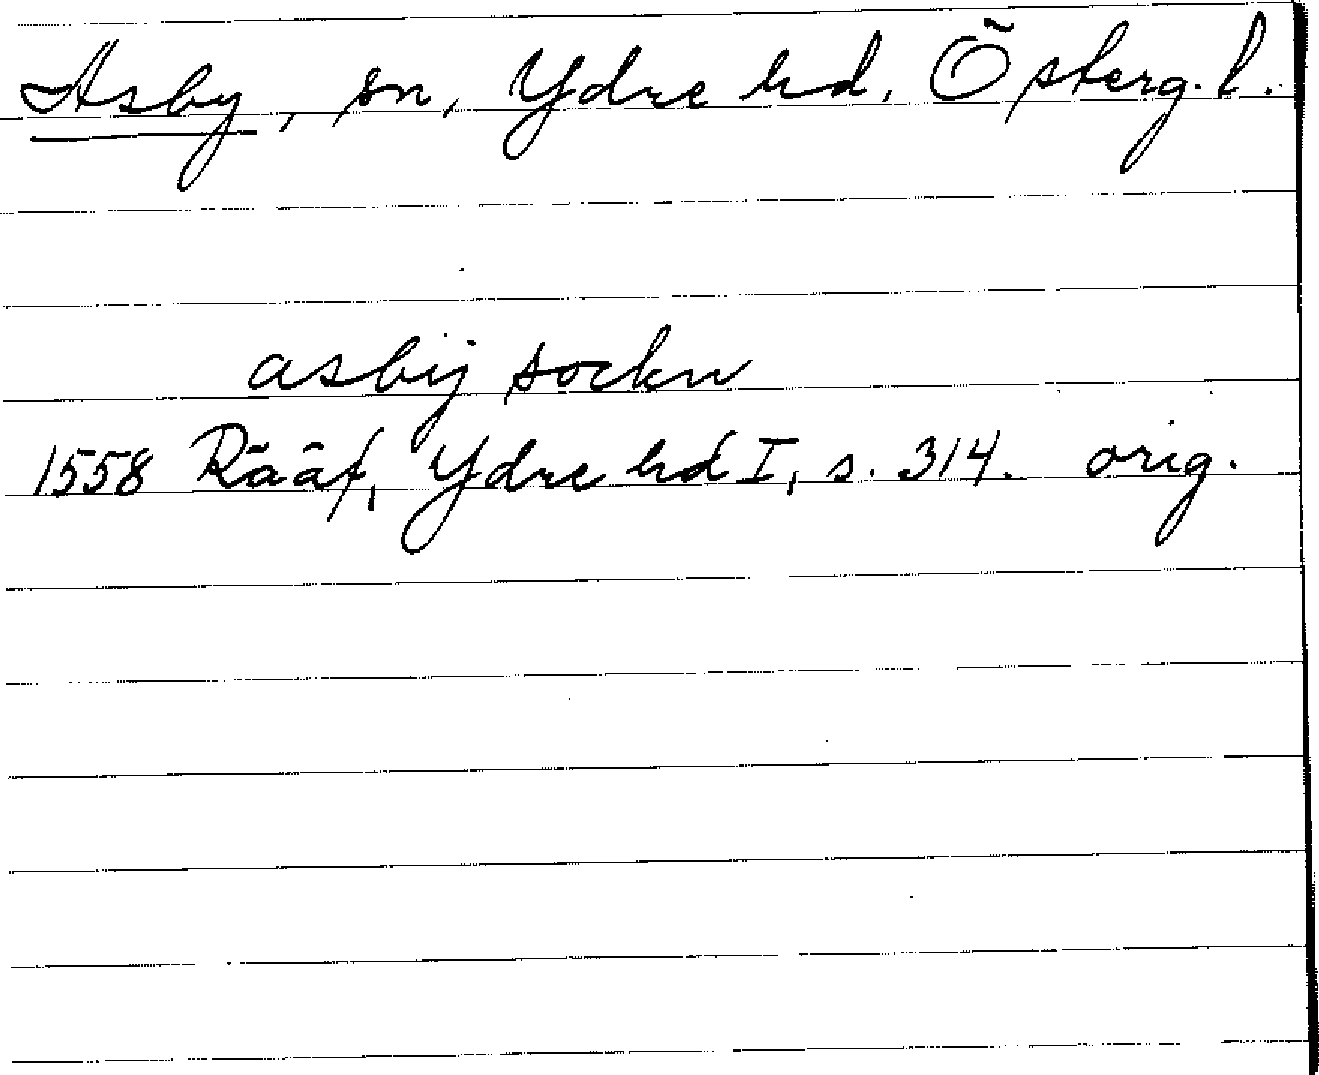 Asby, sn, Ydre hd. Österg. l.
asbÿ sockn
1558 Rääf, Ydre hd I, s. 314. orig.